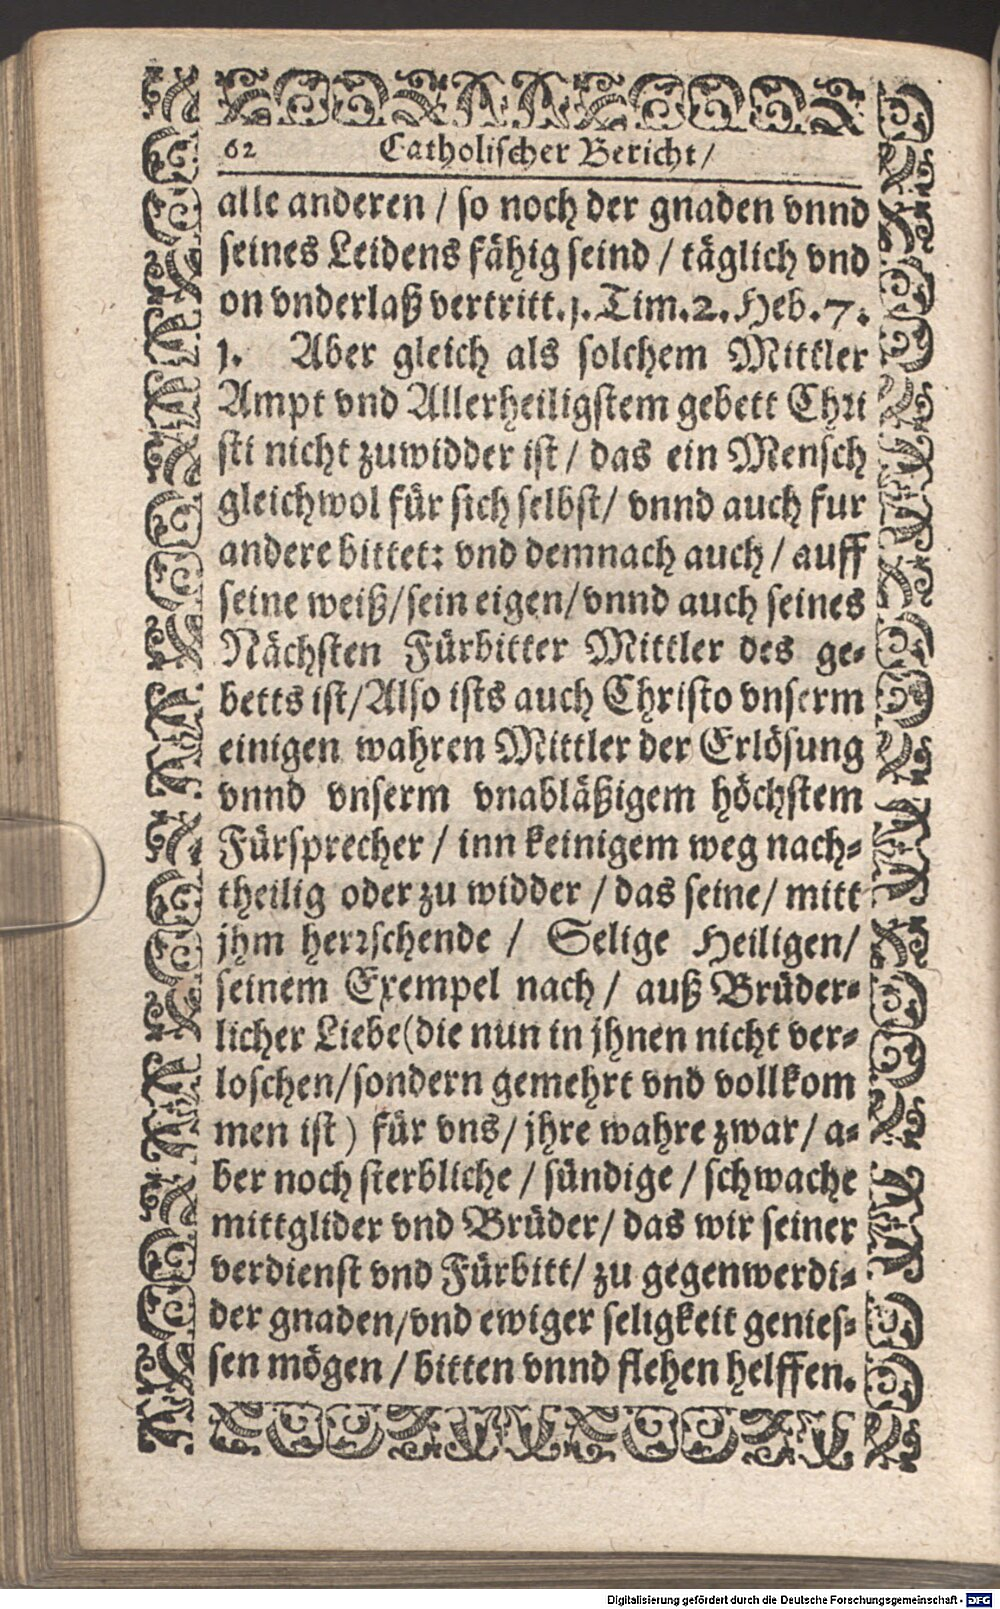 62 Catholischer Bericht/
alle anderen / so noch der gnaden vnnd
seines Leidens fähig seind / täglich vnd
on vnderlaß vertritt. 1. Tim. 2. Heb. 7.
1. Aber gleich als solchem Mittler
Ampt vnd Allerheiligstem gebett Chri
sti nicht zuwidder ist / das ein Mensch
gleichwol für sich selbst / vnnd auch fur
andere bittet: vnd demnach auch / auff
seine weiß/sein eigen/vnnd auch seines
Nächsten Fürbitter Mittler des ge-
betts ist/Also ists auch Christo vnserm
einigen wahren Mittler der Erlösung
vnnd vnserm vnabläßigem höchstem
Fürsprecher / inn keinigem weg nach-
theilig oder zu widder / das seine/ mitt
jhm herrschende / Selige Heiligen/
seinem Exempel nach / auß Brüder-
licher Liebe(die nun in jhnen nicht ver-
loschen/sondern gemehrt vnd vollkom
men ist) für vns/ jhre wahre zwar/ a-
ber noch sterbliche / sündige / schwache
mittglider vnd Brüder/ das wir seiner
verdienst vnd Fürbitt/ zu gegenwerdi-
der gnaden/vnd ewiger seligkeit genies-
sen mögen / bitten vnnd flehen helffen.
Digitalisierung gefördert durch die Deutsche Forschungsgemeinschaft - DFG